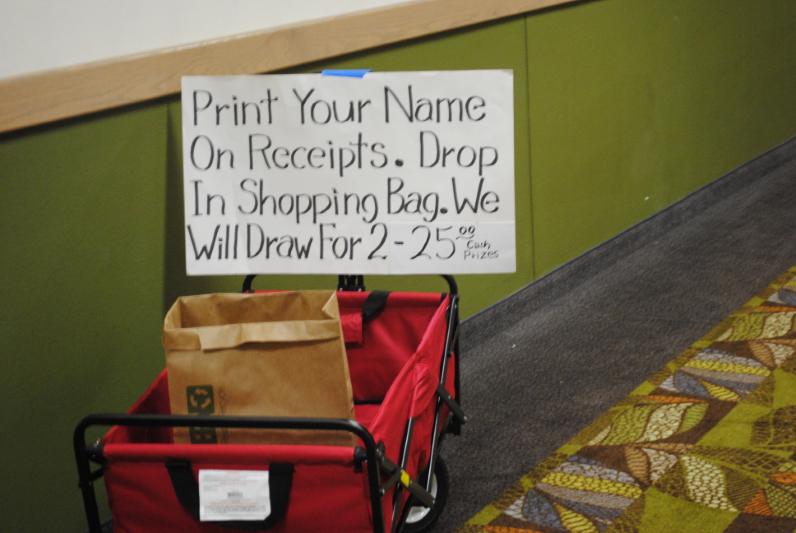 Print Your Name
On Receipts. Drop
In Shopping Bag. We
Will Draw For 2 - 25.00 Cash
Prizes